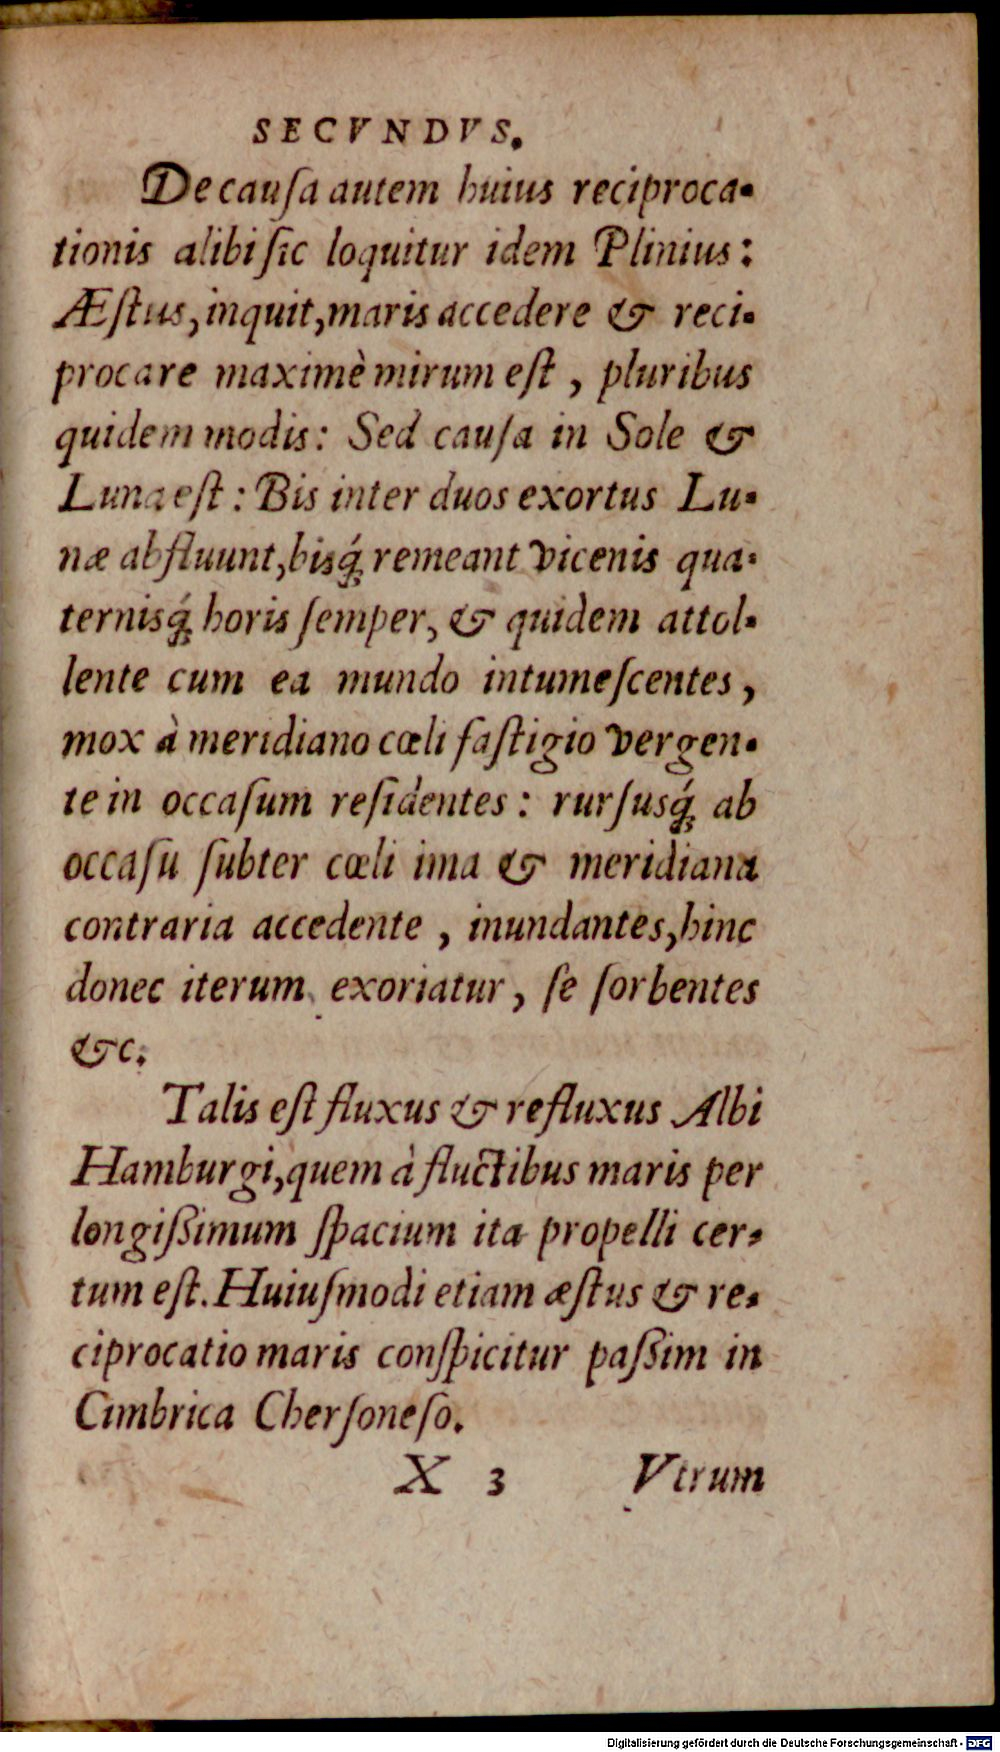 SECVNDVS.
De cauſa autem huius reciproca-
tionis alibi ſic loquitur idem Plinius:
Æſtus, inquit, maris accedere & reci-
procare maximè mirum eſt, pluribus
quidem modis: Sed cauſa in Sole &
Luna eſt: Bis inter duos exortus Lu-
næ abfluunt, bisq́; remeant vicenis qua-
ternisq́; horis ſemper, & quidem attol-
lente cum ea mundo intumeſcentes,
mox à meridiano cœli faſtigio vergen-
te in occaſum reſidentes: rurſusq́; ab
occaſu ſubter cœli ima & meridiana
contraria accedente, inundantes, hinc
donec iterum exoriatur, ſe ſorbentes
&c.
Talis eſt fluxus & refluxus Albi
Hamburgi, quem à fluctibus maris per
longiſſimum ſpacium ita propelli cer-
tum eſt. Huiuſmodi etiam æſtus & re-
ciprocatio maris conſpicitur paſſim in
Cimbrica Cherſoneſo.
X 3 Vtrum
Digitalisierung gefördert durch die Deutsche Forschungsgemeinschaft - DFG